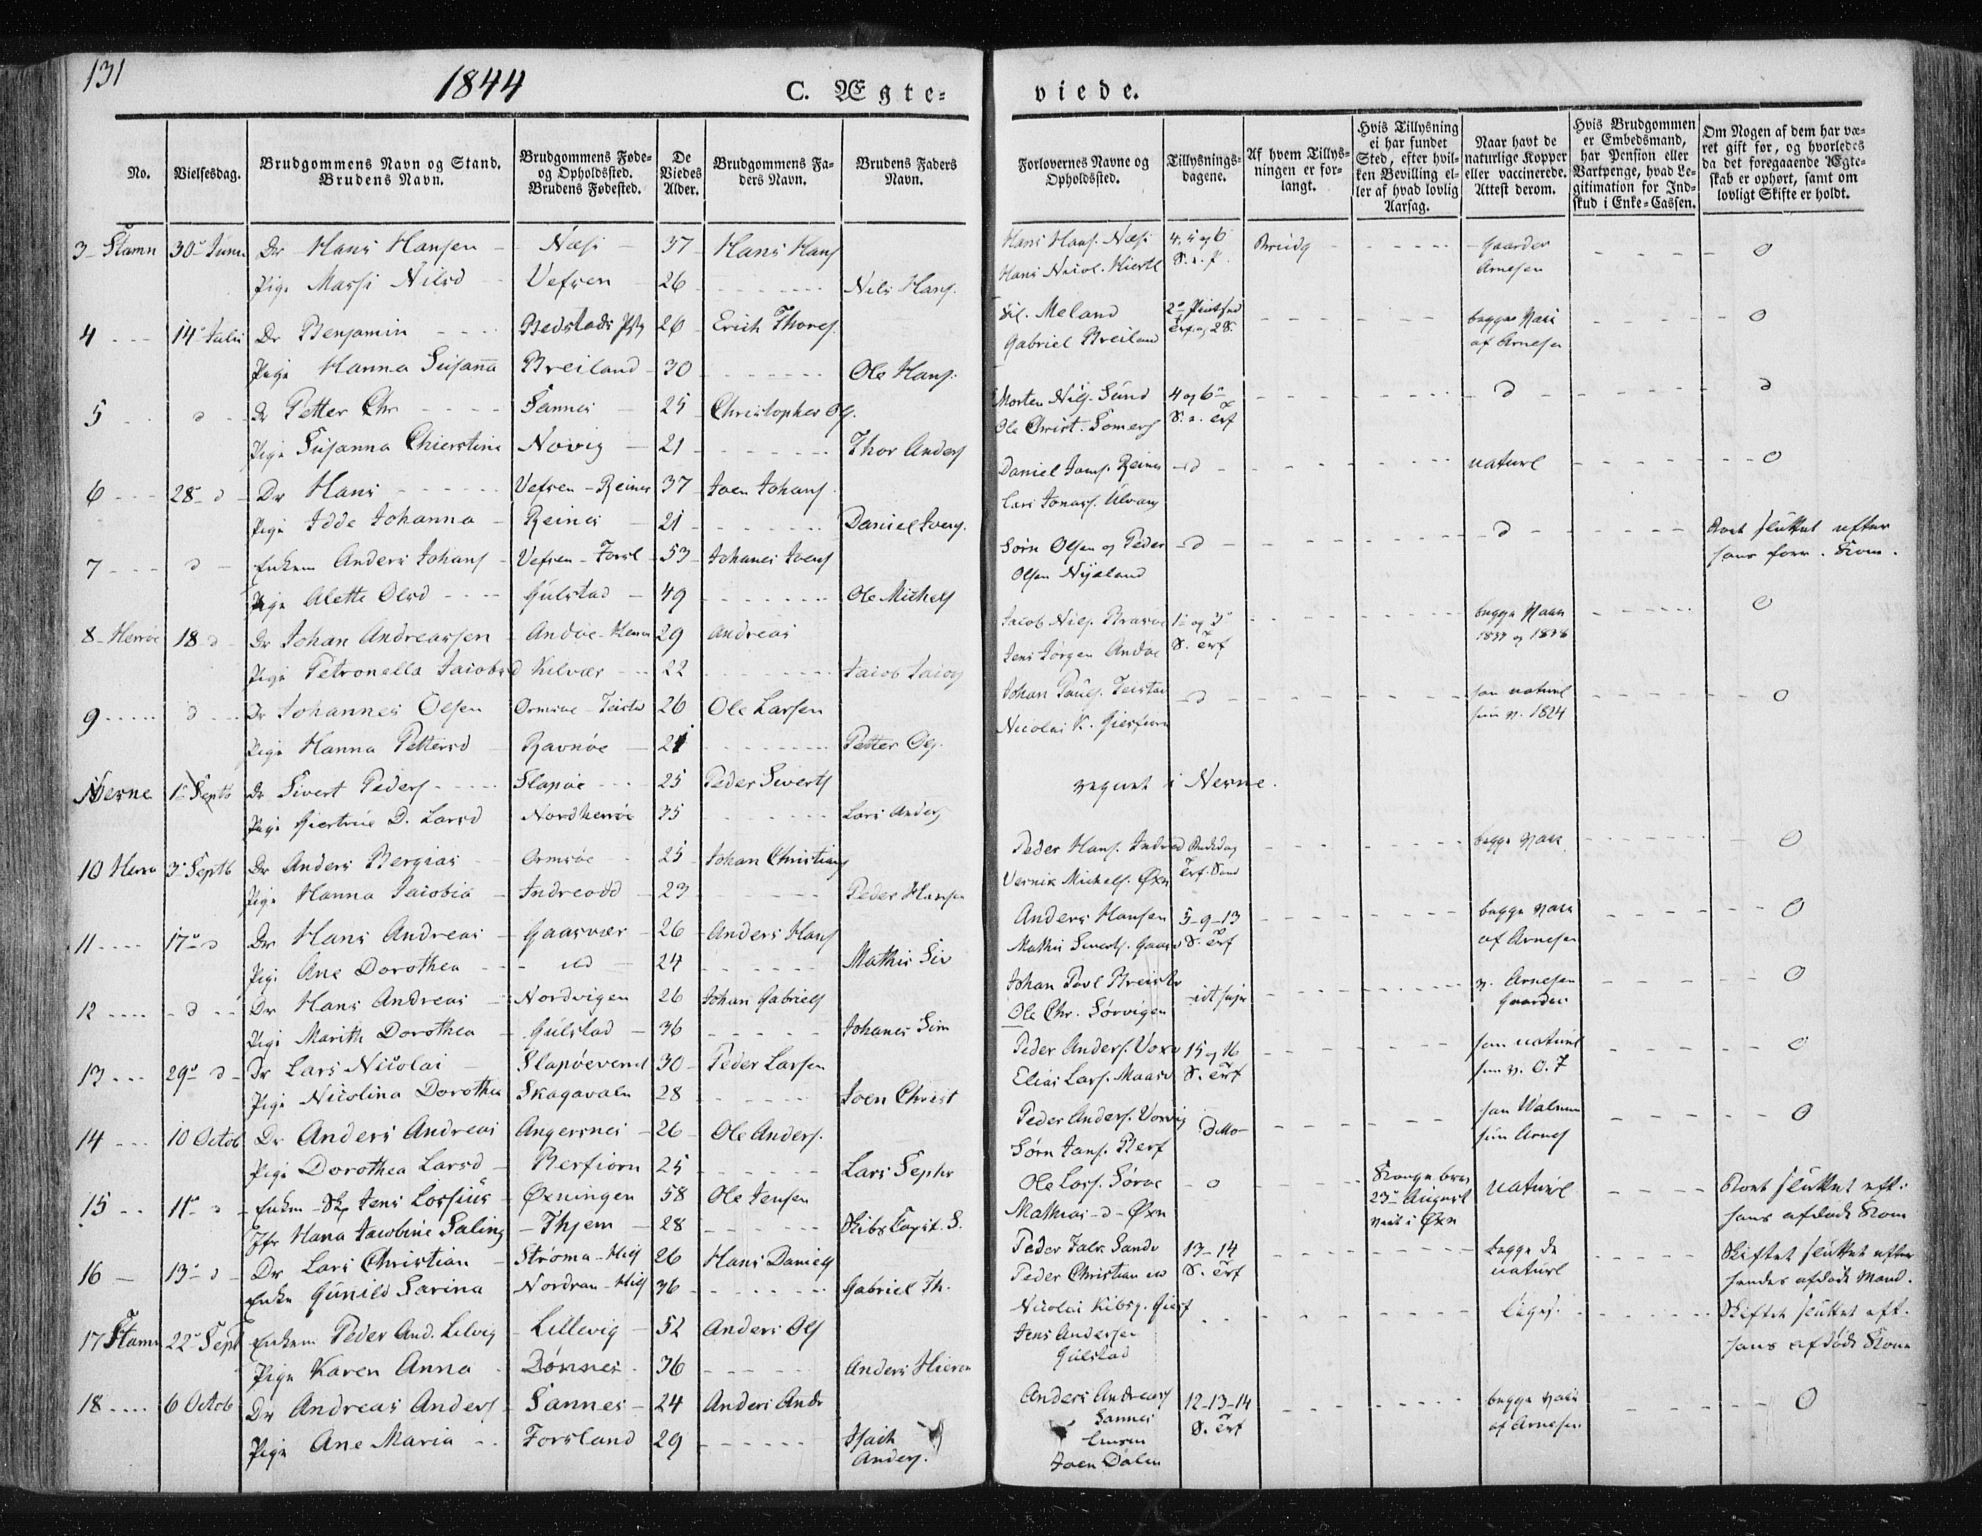 131
1844
C. Ægte-
viede.
No.
Vielsesdag.
Brudgommens Navn og Stand.
Brudens Navn.
Brudgommens Føde-
og Opholdssted.
Brudens Fødested.
De
Viedes
Alder.
Brudgommens Fa-
ders Navn.
Brudens Faders
Navn.
Forlovernes Navne og
Opholdssted.
Tillysnings-
dagene.
Af hvem Tillys-
ningen er for-
langt.
Hvis Tillysning
ei har fundet
Sted, efter hvil-
ken Bevilling el-
ler af hvad lovlig
Aarsag.
Naar havt de
naturlige Kopper
eller vaccinerede.
Attest derom.
Hvis Brudgommen
er Embedsmand,
har Pension eller
Vartpenge, hvad Le-
gitimation for Ind-
skud i Enke-Cassen.
Om Nogen af dem har væ-
ret gift før, og hvorledes
da det foregaaende Ægte-
skab er ophørt, samt om
lovligt Skifte er holdt.
3 Stamn 30 Juni Dr Hans Hansen Næsi 37 Hans Hans Hans Hans. Næsi 4, 5 og 6 Brudg Gaarder Arnesen 0
Pige Massi Nilsd Vefsen 26 Nils Hans. Hans Nicol. Hiertl S. e. p.
4 14 Juli Dr Benjamin Bedstads 26 Erich Thores. Sil. Meland begge Vacc af Arnesen 0
Pige Hanna Susanna Breiland 30 Ole Hans. Gabriel Breiland
5 d Dr Petter Chr Sannes 25 Christopher Morten Nils. Sund 4 og 6 d d
Pige Susanna Chierstine Novig 21 Thor Anders Ole Christ. Somers S. e. Trf
6 28 d Dr Hans Vefsen - Reines 37 Joen Johans. Daniel Joens. Reines d naturl 0
Pige Idde Johanna Reines 21 Daniel Ivers. Lars Jonass. Ulvang
7 d Enkem Anders Johans Vefsen - Forsl 53 Johanes Ivers Sørn Olsen og Peder d d Boet sluttet efter hans forr. Kone.
Pige Alette Olsd Gulstad 49 Ole Michels Olsen Nyeland
8 Herrøe 18 d Dr Johan Andreassen Andøe - Herrøe 29 Andreas Jacob Nils. Brasøe 1 og 3 begge Vacc 0
Pige Petronella Jacobsd Kilvær 22 Jacob Jacobs Jens Jørgen Andøe S. Trf
9 d Dr Johannes Olsen Ormsøe - Teistad 26 Ole Larsen Johan Pauls. Teistad d han naturl hun v. 1824 0
Pige Hanna Pettersd Ravnøe 21 Petter Ols. Nicolai K.
Nerne 1 Septb Dr Sivert Peders Slapøe 25 Peder Siverts regnet i Nerne.
Pige Giertrue D. Larsd Nordherrøe 35 Lars Anders
10 Herrø 3 Septb Dr Anders Bergias Ormsøe 25 Johan Christians Peder Hans. begge Vacc 0
Pige Hanna Jacobia Indreodd 23 Peder Hansen Vernik Michels. Øxn Trf. Sønd
11 17 d Dr Hans Andreas Gaasvær 26 Anders Hans Anders Hansen 5-9-13 begge Vacc af Arnesen 0
Pige Ane Dorothea 24 Mathis Siv Mathis Siverts. Gaasv S. Trf
12 d Dr Hans Andreas Nordvigen 26 Johan Gabriels Johan Povl v. Arnesen Gaarder 0
Pige Marith Dorothea Gulstad 36 Johanes Sim Ole Chr. Sørvigen
13 29 d Dr Lars Nicolai Slapøevered 30 Peder Larsen Peder Anders. 15 og 16 han naturl hun v. 0
Pige Nicolina Dorothea Skagavaln 28 Joen Christ Elias Lars. S. Trf
14 10 Octob Dr Anders Andreas Angersnes 26 Ole Anders. Peder Anders. Vorvig Ditto han hun Arnes 0
Pige Dorothea Larsd Berfiorn 25 Lars Sephr Sørn Jans. Berf
15 11 d Enkem Jens Lossius Øxningen 58 Ole Jensen Ole Lars. Sørøe 0 23 August viet i Øxn naturl Boet sluttet eft. hans afdøde Kone
Jfr Hana Jacobine Saling Thjem 28 Skibs Capit. S. Mathias d Øxn
16 13 d Dr Lars Christian Strøma 26 Hans Daniels Peder Falk Sandv 13-14 begge de naturl Skiftet sluttet efter hendes afdøde Mand.
Enke Gunild Sarina Nordran 36 Gabriel Th. Peder Christian S. Trf
17 Stamn 22 Sept Enkem Peder And. Lilvig Lillevig 52 Anders Ols Nicolai Kibsg. liges. Skiftet sluttet eft. hans afdøde Kone
Pige Karen Anna Dønnes 36 Anders Hieron Jens Andersen Gulstad
18 6 Octob Dr Andreas Anders Sannes 24 Anders Andr Anders Andreas Sannes 12-13-14 begge Vacc af Arnesen 0
Pige Ane Maria Forsland 29 Isach Anders. Joen Dalen S. Trf